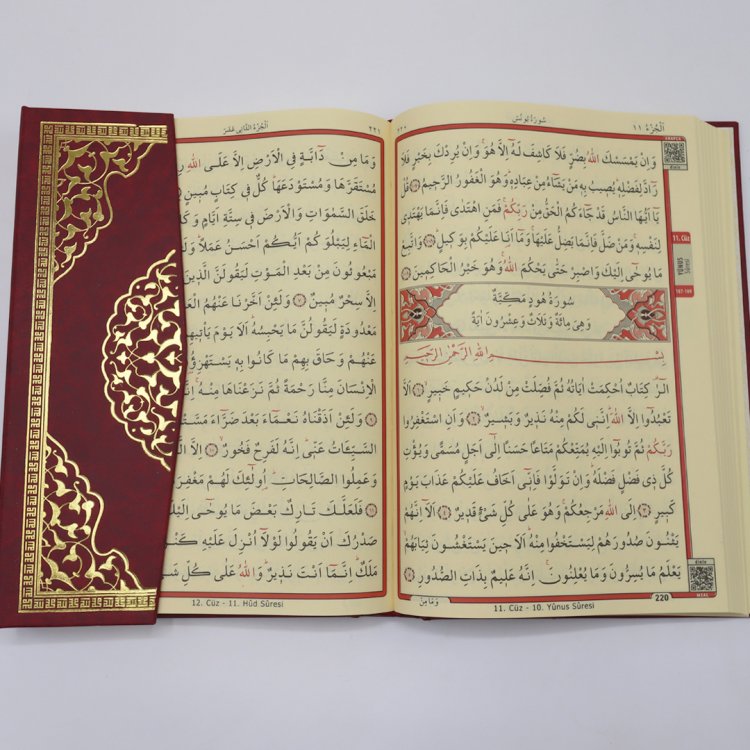 اَلْجُزْءُ ١١
سُورَةُ يُونُسَ
٢٢٠
وَاِنْ يَمْسَسْكَ اللّٰهُ بِضُرٍّ فَلَا كَاشِفَ لَهُٓ اِلَّا هُوَۚ وَاِنْ يُرِدْكَ بِخَيْرٍ فَلَا
رَٓادَّ لِفَضْلِه۪ۜ يُص۪يبُ بِه۪ مَنْ يَشَٓاءُ مِنْ عِبَادِه۪ۜ وَهُوَ الْغَفُورُ الرَّح۪يمُ ۝١٠٧ قُلْ
يَٓا اَيُّهَا النَّاسُ قَدْ جَٓاءَكُمُ الْحَقُّ مِنْ رَبِّكُمْۚ فَمَنِ اهْتَدٰى فَاِنَّمَا يَهْتَد۪ي
لِنَفْسِه۪ۚ وَمَنْ ضَلَّ فَاِنَّمَا يَضِلُّ عَلَيْهَاۚ وَمَٓا اَنَا۬ عَلَيْكُمْ بِوَك۪يلٍۜ ۝١٠٨ وَاتَّبِعْ
مَا يُوحٰٓى اِلَيْكَ وَاصْبِرْ حَتّٰى يَحْكُمَ اللّٰهُۚ وَهُوَ خَيْرُ الْحَاكِم۪ينَ ۝١٠٩
سُورَةُ هُودٍ مَكِّيَّةٌ
وَهِيَ مِائَةٌ وَثَلَاثٌ وَعِشْرُونَ اٰيَةً
بِسْمِ اللّٰهِ الرَّحْمٰنِ الرَّح۪يمِ
الٓرٰ۠ كِتَابٌ اُحْكِمَتْ اٰيَاتُهُ ثُمَّ فُصِّلَتْ مِنْ لَدُنْ حَك۪يمٍ خَب۪يرٍۙ ۝١ اَلَّا
تَعْبُدُٓوا اِلَّا اللّٰهَۜ اِنَّن۪ي لَكُمْ مِنْهُ نَذ۪يرٌ وَبَش۪يرٌۙ ۝٢ وَاَنِ اسْتَغْفِرُوا
رَبَّكُمْ ثُمَّ تُوبُٓوا اِلَيْهِ يُمَتِّعْكُمْ مَتَاعًا حَسَنًا اِلٰٓى اَجَلٍ مُسَمًّى وَيُؤْتِ
كُلَّ ذ۪ي فَضْلٍ فَضْلَهُۜ وَاِنْ تَوَلَّوْا فَاِنّ۪ٓي اَخَافُ عَلَيْكُمْ عَذَابَ يَوْمٍ
كَب۪يرٍ ۝٣ اِلَى اللّٰهِ مَرْجِعُكُمْۚ وَهُوَ عَلٰى كُلِّ شَيْءٍ قَد۪يرٌ ۝٤ اَلَٓا اِنَّهُمْ
يَثْنُونَ صُدُورَهُمْ لِيَسْتَخْفُوا مِنْهُۜ اَلَا ح۪ينَ يَسْتَغْشُونَ ثِيَابَهُمْۙ
يَعْلَمُ مَا يُسِرُّونَ وَمَا يُعْلِنُونَۚ اِنَّهُ عَل۪يمٌ بِذَاتِ الصُّدُورِ ۝٥
وَمَا مِنْ
11. Cüz - 10. Yûnus Sûresi
220
11. Cüz
YÛNUS
Sûresi
107-109
اَلْجُزْءُ الثَّانِي عَشَرَ
٢٢١
وَمَا مِنْ دَٓابَّةٍ فِي الْاَرْضِ اِلَّا عَلَى اللّٰهِ
مُسْتَقَرَّهَا وَمُسْتَوْدَعَهَاۜ كُلٌّ ف۪ي كِتَابٍ مُب۪ينٍ
خَلَقَ السَّمٰوَاتِ وَالْاَرْضَ ف۪ي سِتَّةِ اَيَّامٍ
الْمَٓاءِ لِيَبْلُوَكُمْ اَيُّكُمْ اَحْسَنُ عَمَلًاۜ
مَبْعُوثُونَ مِنْ بَعْدِ الْمَوْتِ لَيَقُولَنَّ الَّذ۪ينَ
اِلَّا سِحْرٌ مُب۪ينٌ ۝٧ وَلَئِنْ اَخَّرْنَا عَنْهُمُ
مَعْدُودَةٍ لَيَقُولُنَّ مَا يَحْبِسُهُۜ اَلَا يَوْمَ يَأْت۪يهِمْ
عَنْهُمْ وَحَاقَ بِهِمْ مَا كَانُوا بِه۪
الْاِنْسَانَ مِنَّا رَحْمَةً ثُمَّ نَزَعْنَاهَا مِنْهُۚ
وَلَئِنْ اَذَقْنَاهُ نَعْمَٓاءَ بَعْدَ ضَرَّٓاءَ
السَّيِّـَٔاتُ عَنّ۪يۜ اِنَّهُ لَفَرِحٌ فَخُورٌۙ ۝١٠ اِلَّا
وَعَمِلُوا الصَّالِحَاتِۜ اُو۬لٰٓئِكَ لَهُمْ
فَلَعَلَّكَ تَارِكٌ بَعْضَ مَا يُوحٰٓى
صَدْرُكَ اَنْ يَقُولُوا لَوْلَٓا اُنْزِلَ عَلَيْهِ
مَلَكٌۜ اِنَّمَٓا اَنْتَ نَذ۪يرٌۜ وَاللّٰهُ عَلٰى كُلِّ
12. Cüz - 11. Hûd Sûresi